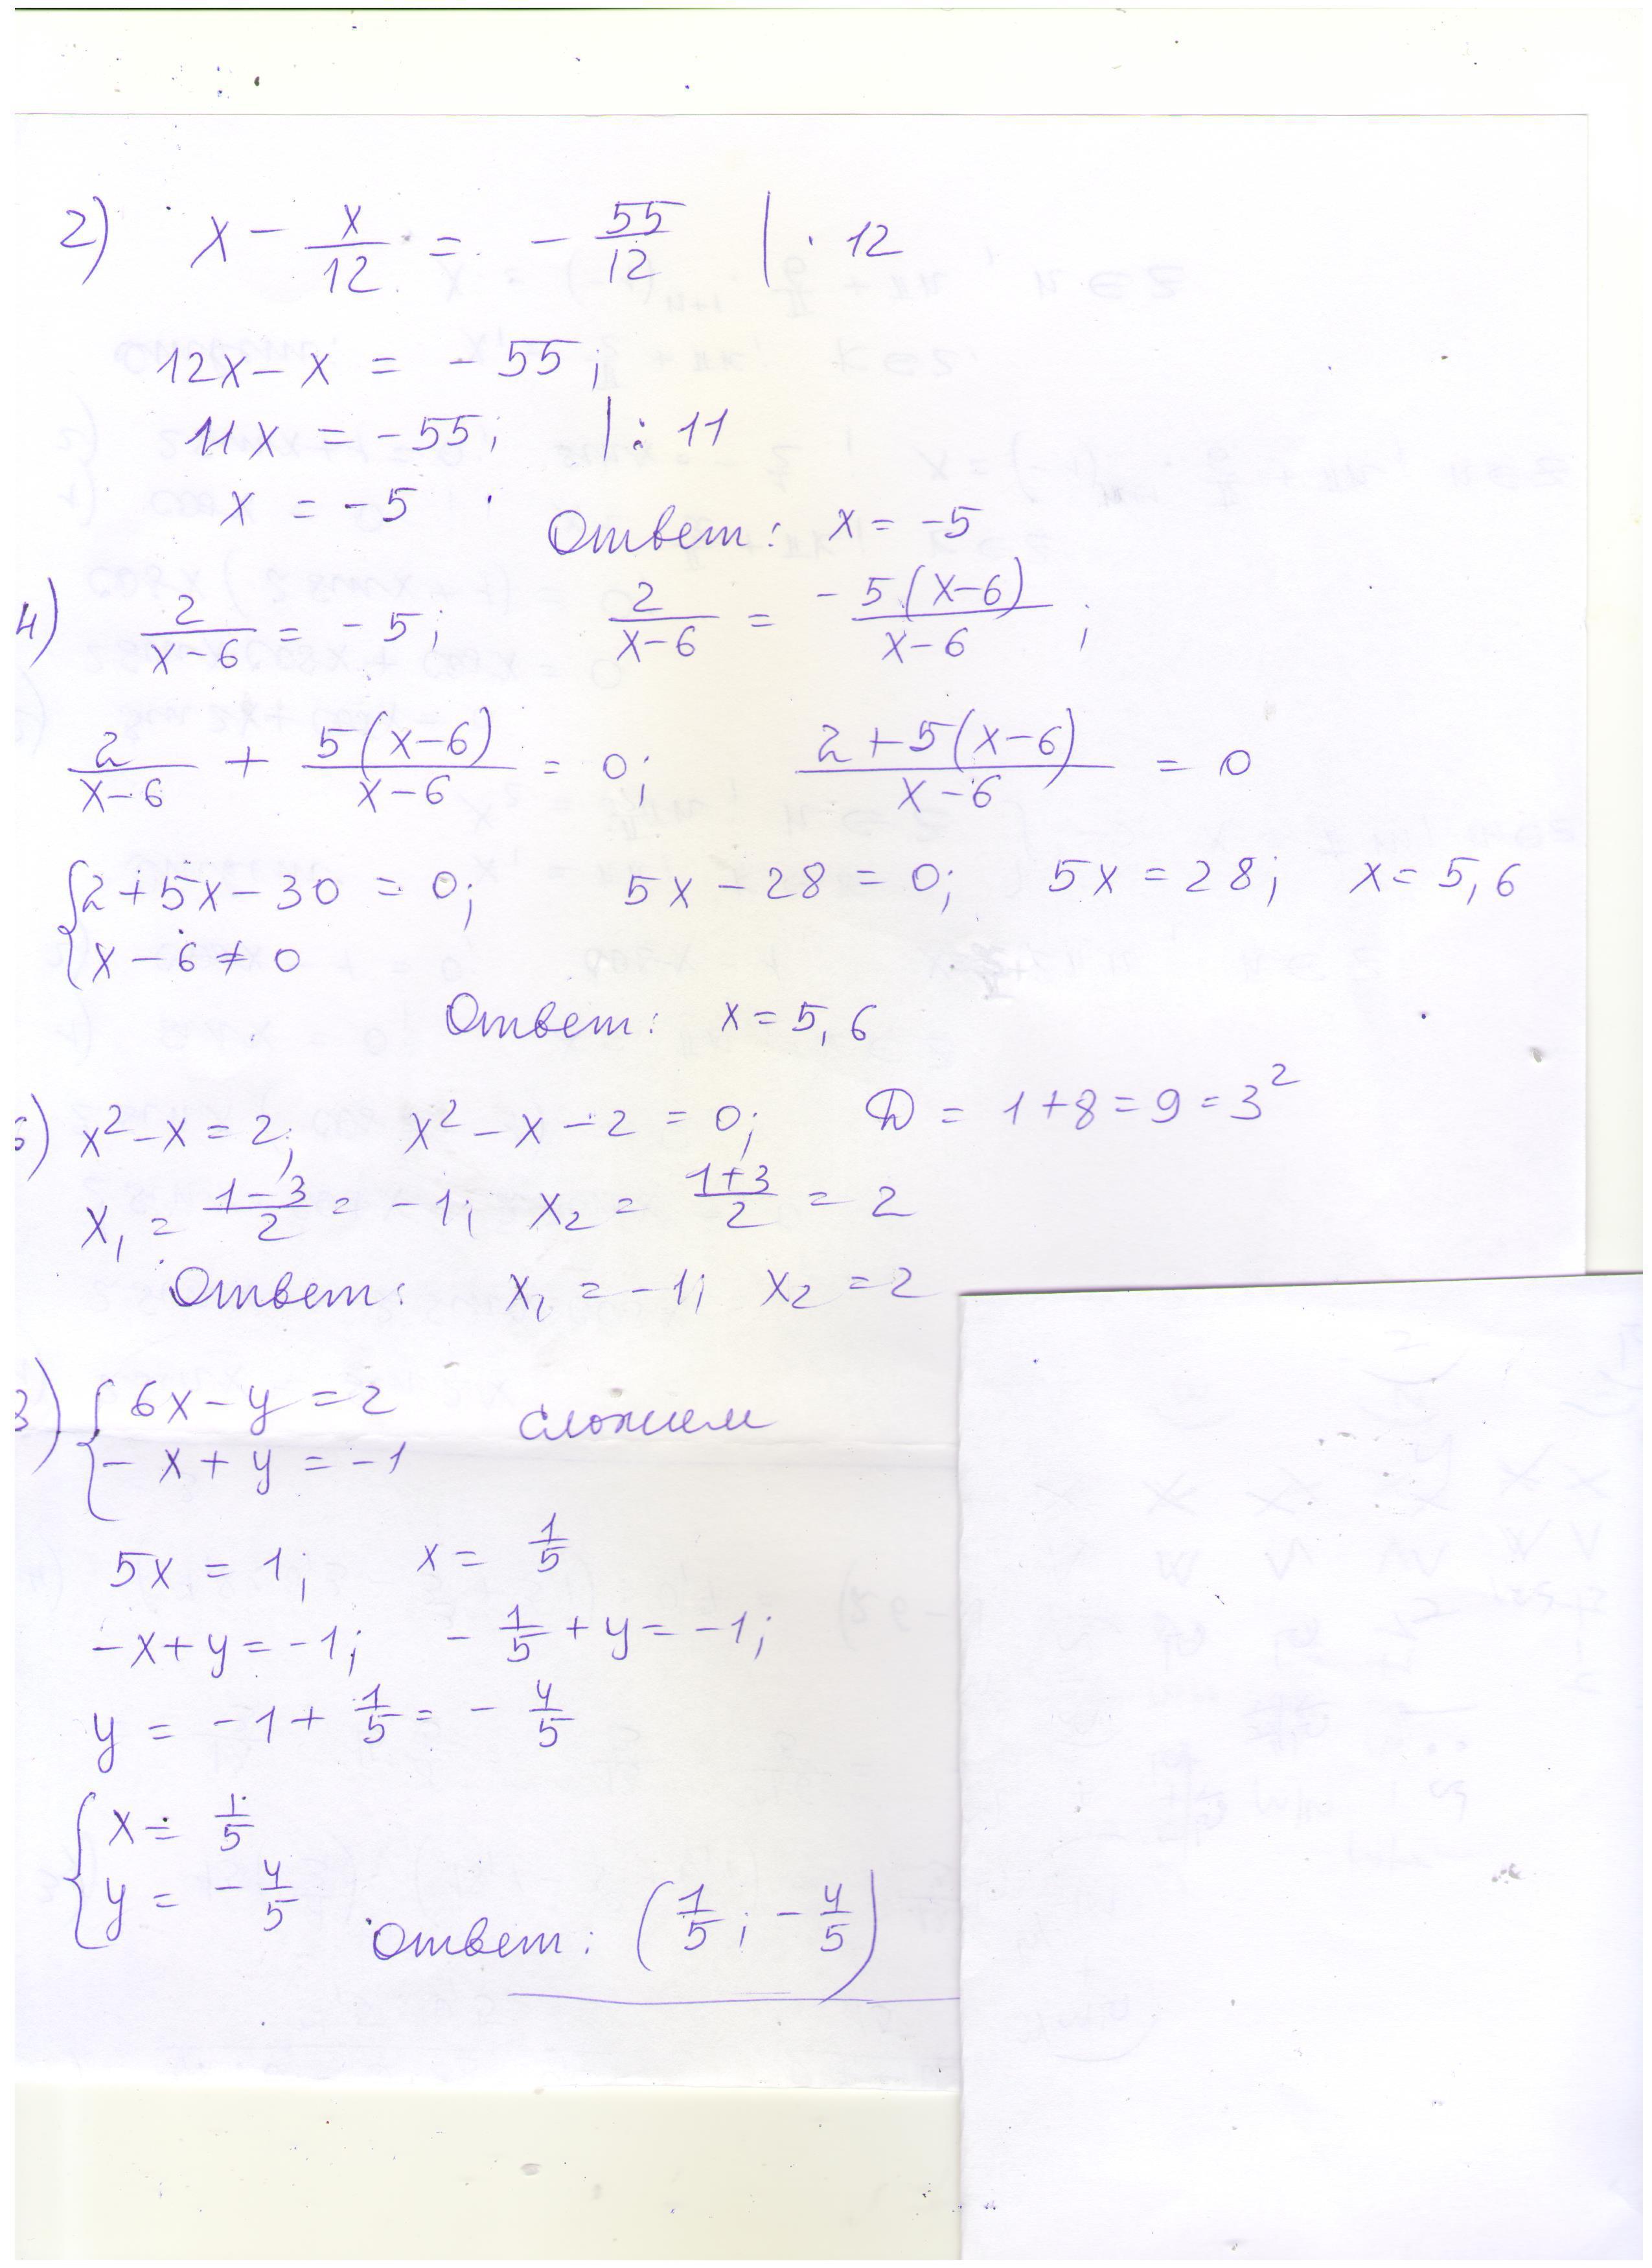 2) x - x/12 = - 55/12 | · 12
12x - x = - 55;
11x = -55; | : 11
x = -5
Ответ: x = -5
4) 2/(x-6) = -5; 2/(x-6) = -5(x-6)/(x-6);
2/(x-6) + 5(x-6)/(x-6) = 0; (2+5(x-6))/(x-6) = 0
{ 2+5x-30 = 0; 5x - 28 = 0; 5x = 28; x = 5,6
x - 6 ≠ 0
Ответ: x = 5,6
) x² - x = 2; x² - x - 2 = 0; D = 1+8 = 9 = 3²
x₁ = (1-3)/2 = -1; x₂ = (1+3)/2 = 2
Ответ: x₁ = -1; x₂ = 2
3) { 6x - y = 2 сложим
- x + y = -1
5x = 1; x = 1/5
-x + y = -1; - 1/5 + y = -1;
y = -1 + 1/5 = - 4/5
{ x = 1/5
y = - 4/5
Ответ: (1/5; - 4/5)